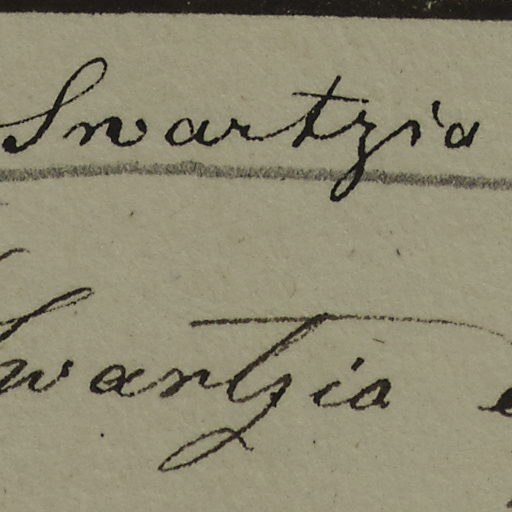 Swartzia
Swartzia